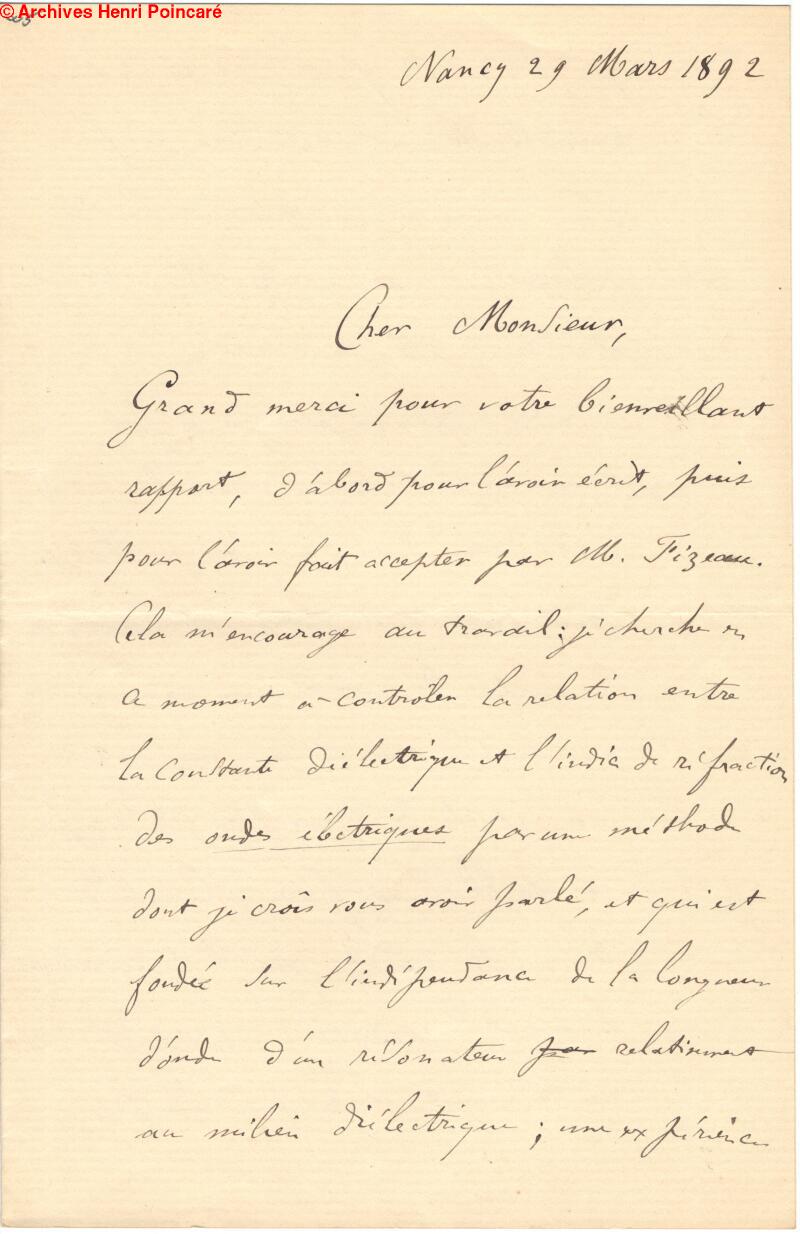 © Archives Henri Poincaré
Nancy 29 Mars 1892
Cher Monsieur,
Grand merci pour votre bienveillant
rapport, d'abord pour l'avoir écrit, puis
pour l'avoir fait accepter par M. Fizeau.
Cela m'encourage au travail; je cherche en
ce moment à contrôler la relation entre
la constante diélectrique et l'indice de réfraction
des ondes électriques par une méthode
dont je crois vous avoir parlé, et qui est
fondée sur l'indépendance de la longueur
d'onde d'un résonateur par relativement
au milieu diélectrique ; une expérience